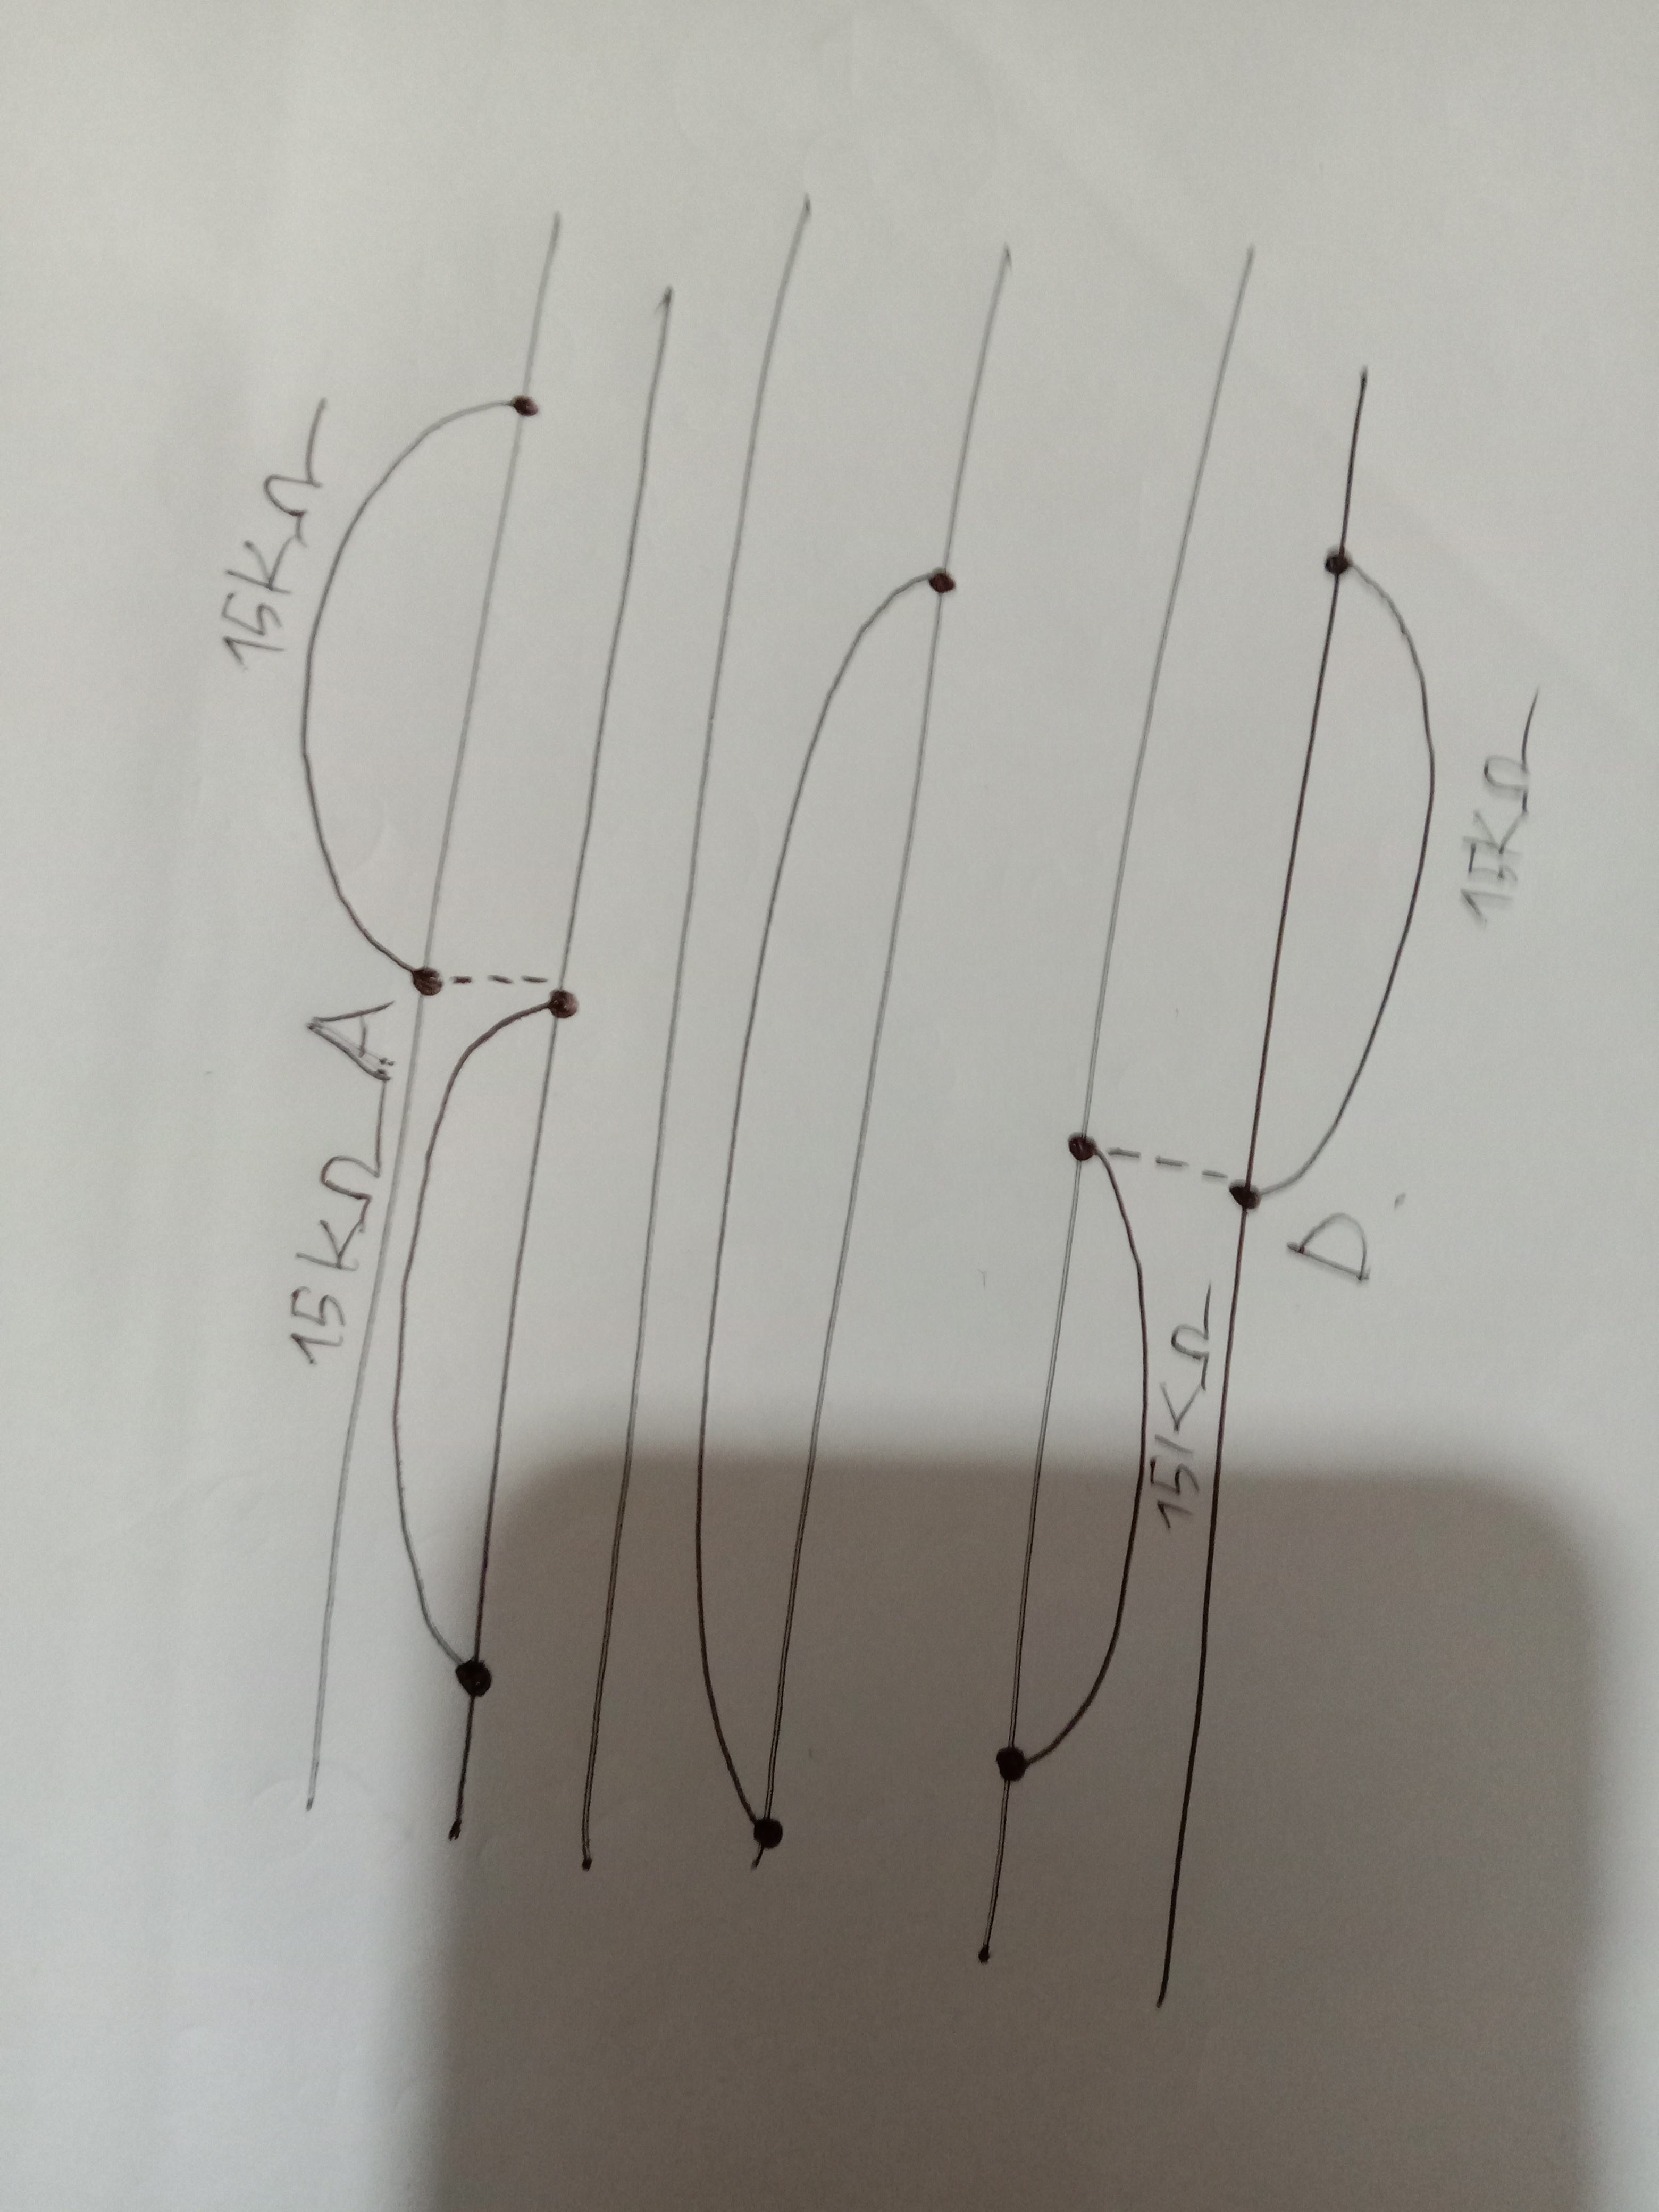 15KΩ
A
15KΩ
15KΩ
D
15KΩ